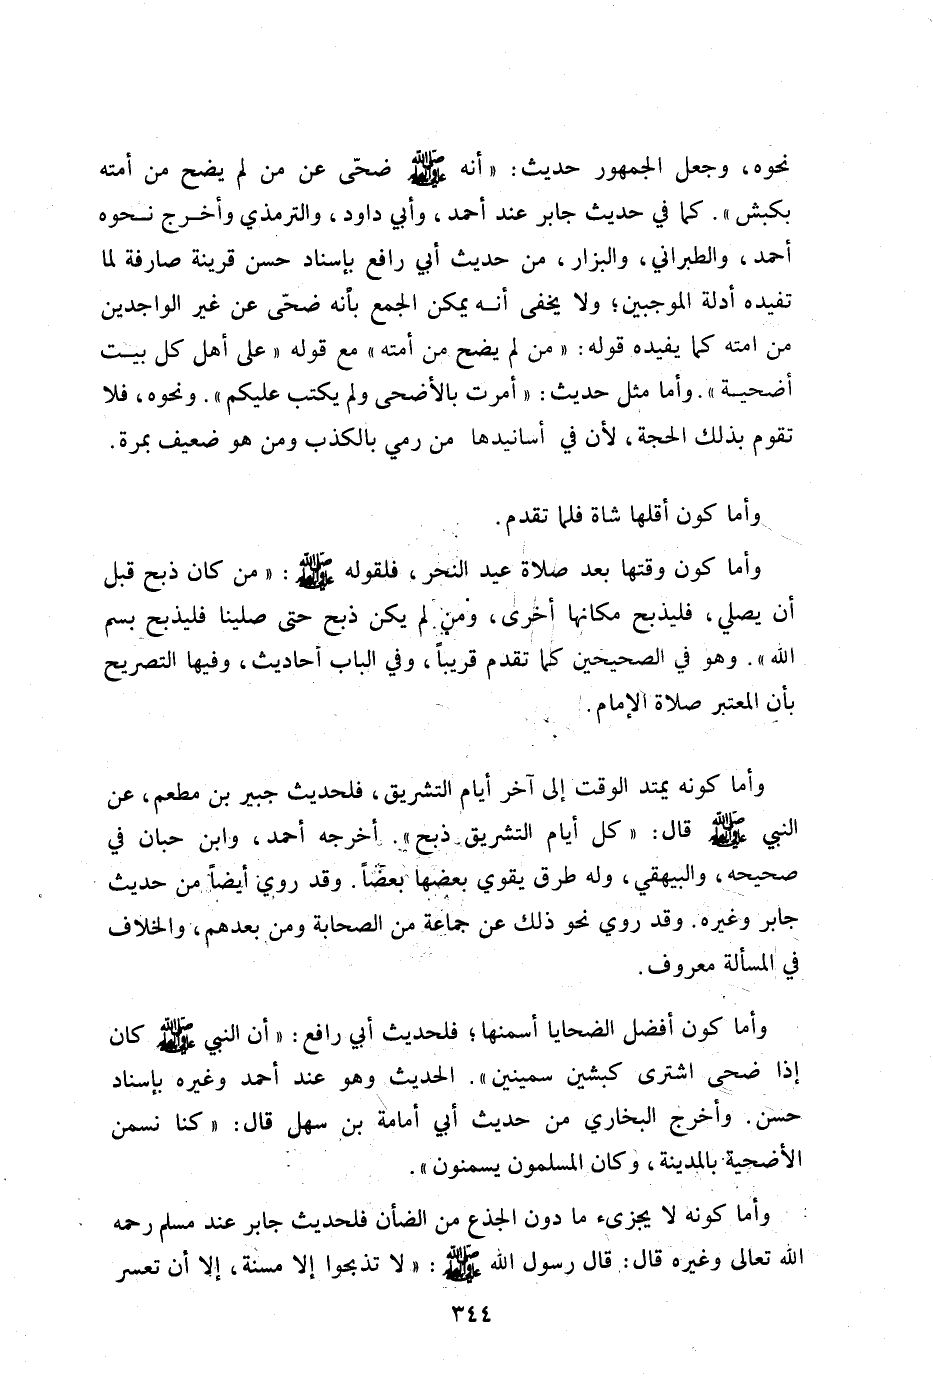 نحوه، وجعل الجمهور حديث: « أنه ﷺ ضحّى عن من لم يضح من أمته
بكبش ». كما في حديث جابر عند أحمد، وأبي داود، والترمذي وأخرج نحوه
أحمد، والطبراني، والبزار، من حديث أبي رافع بإسناد حسن قرينة صارفة لما
تفيده أدلة الموجبين؛ ولا يخفى أنه يمكن الجمع بأنه ضحّى عن غير الواجدين
من امته كما يفيده قوله: « من لم يضح من أمته» مع قوله « على أهل كل بيت
أضحية ». وأما مثل حديث: « أمرت بالأضحى ولم يكتب عليكم». ونحوه، فلا
تقوم بذلك الحجة، لأن في أسانيدها من رمي بالكذب ومن هو ضعيف بمرة.
وأما كون أقلها شاة فلما تقدم.
وأما كون وقتها بعد صلاة عيد النحر، فلقوله ﷺ : « من كان ذبح قبل
أن يصلي، فليذبح مكانها أخرى، ومن لم يكن ذبح حتى صلينا فليذبح بسم
الله ». وهو في الصحيحين كما تقدم قريباً، وفي الباب أحاديث، وفيها التصريح
بأن المعتبر صلاة الإمام.
وأما كونه يمتد الوقت إلى آخر أيام التشريق، فلحديث جبير بن مطعم، عن
النبي ﷺ قال: « كل أيام التشريق ذبح». أخرجه أحمد، وابن حبان في
صحيحه، والبيهقي، وله طرق يقوي بعضها بعضاً. وقد روي أيضاً من حديث
جابر وغيره. وقد روي نحو ذلك عن جماعة من الصحابة ومن بعدهم، والخلاف
في المسألة معروف.
وأما كون أفضل الضحايا أسمنها؛ فلحديث أبي رافع: « أن النبي ﷺ كان
إذا ضحى اشترى كبشين سمينين». الحديث وهو عند أحمد وغيره بإسناد
حسن. وأخرج البخاري من حديث أبي أمامة بن سهل قال: « كنا نسمن
الأضحية بالمدينة، وكان المسلمون يسمنون».
وأما كونه لا يجزىء ما دون الجذع من الضأن فلحديث جابر عند مسلم رحمه
الله تعالى وغيره قال: قال رسول الله ﷺ : « لا تذبحوا إلا مسنة، إلا أن تعسر
٣٤٤